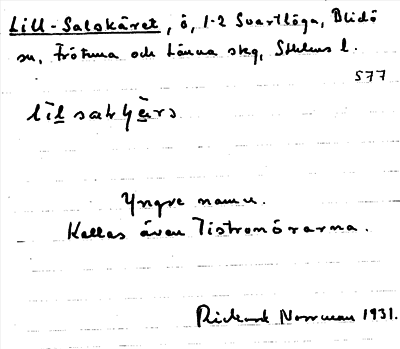 Lill-Salskäret, ö, 1-2 Svartlöga, Blidö
sn, Frötuna och Länna skg, Sthlms l.
577
lil sakȧrs
Yngre namn.
Kallas även Tistronörarna.
Rickard Norrman 1931.